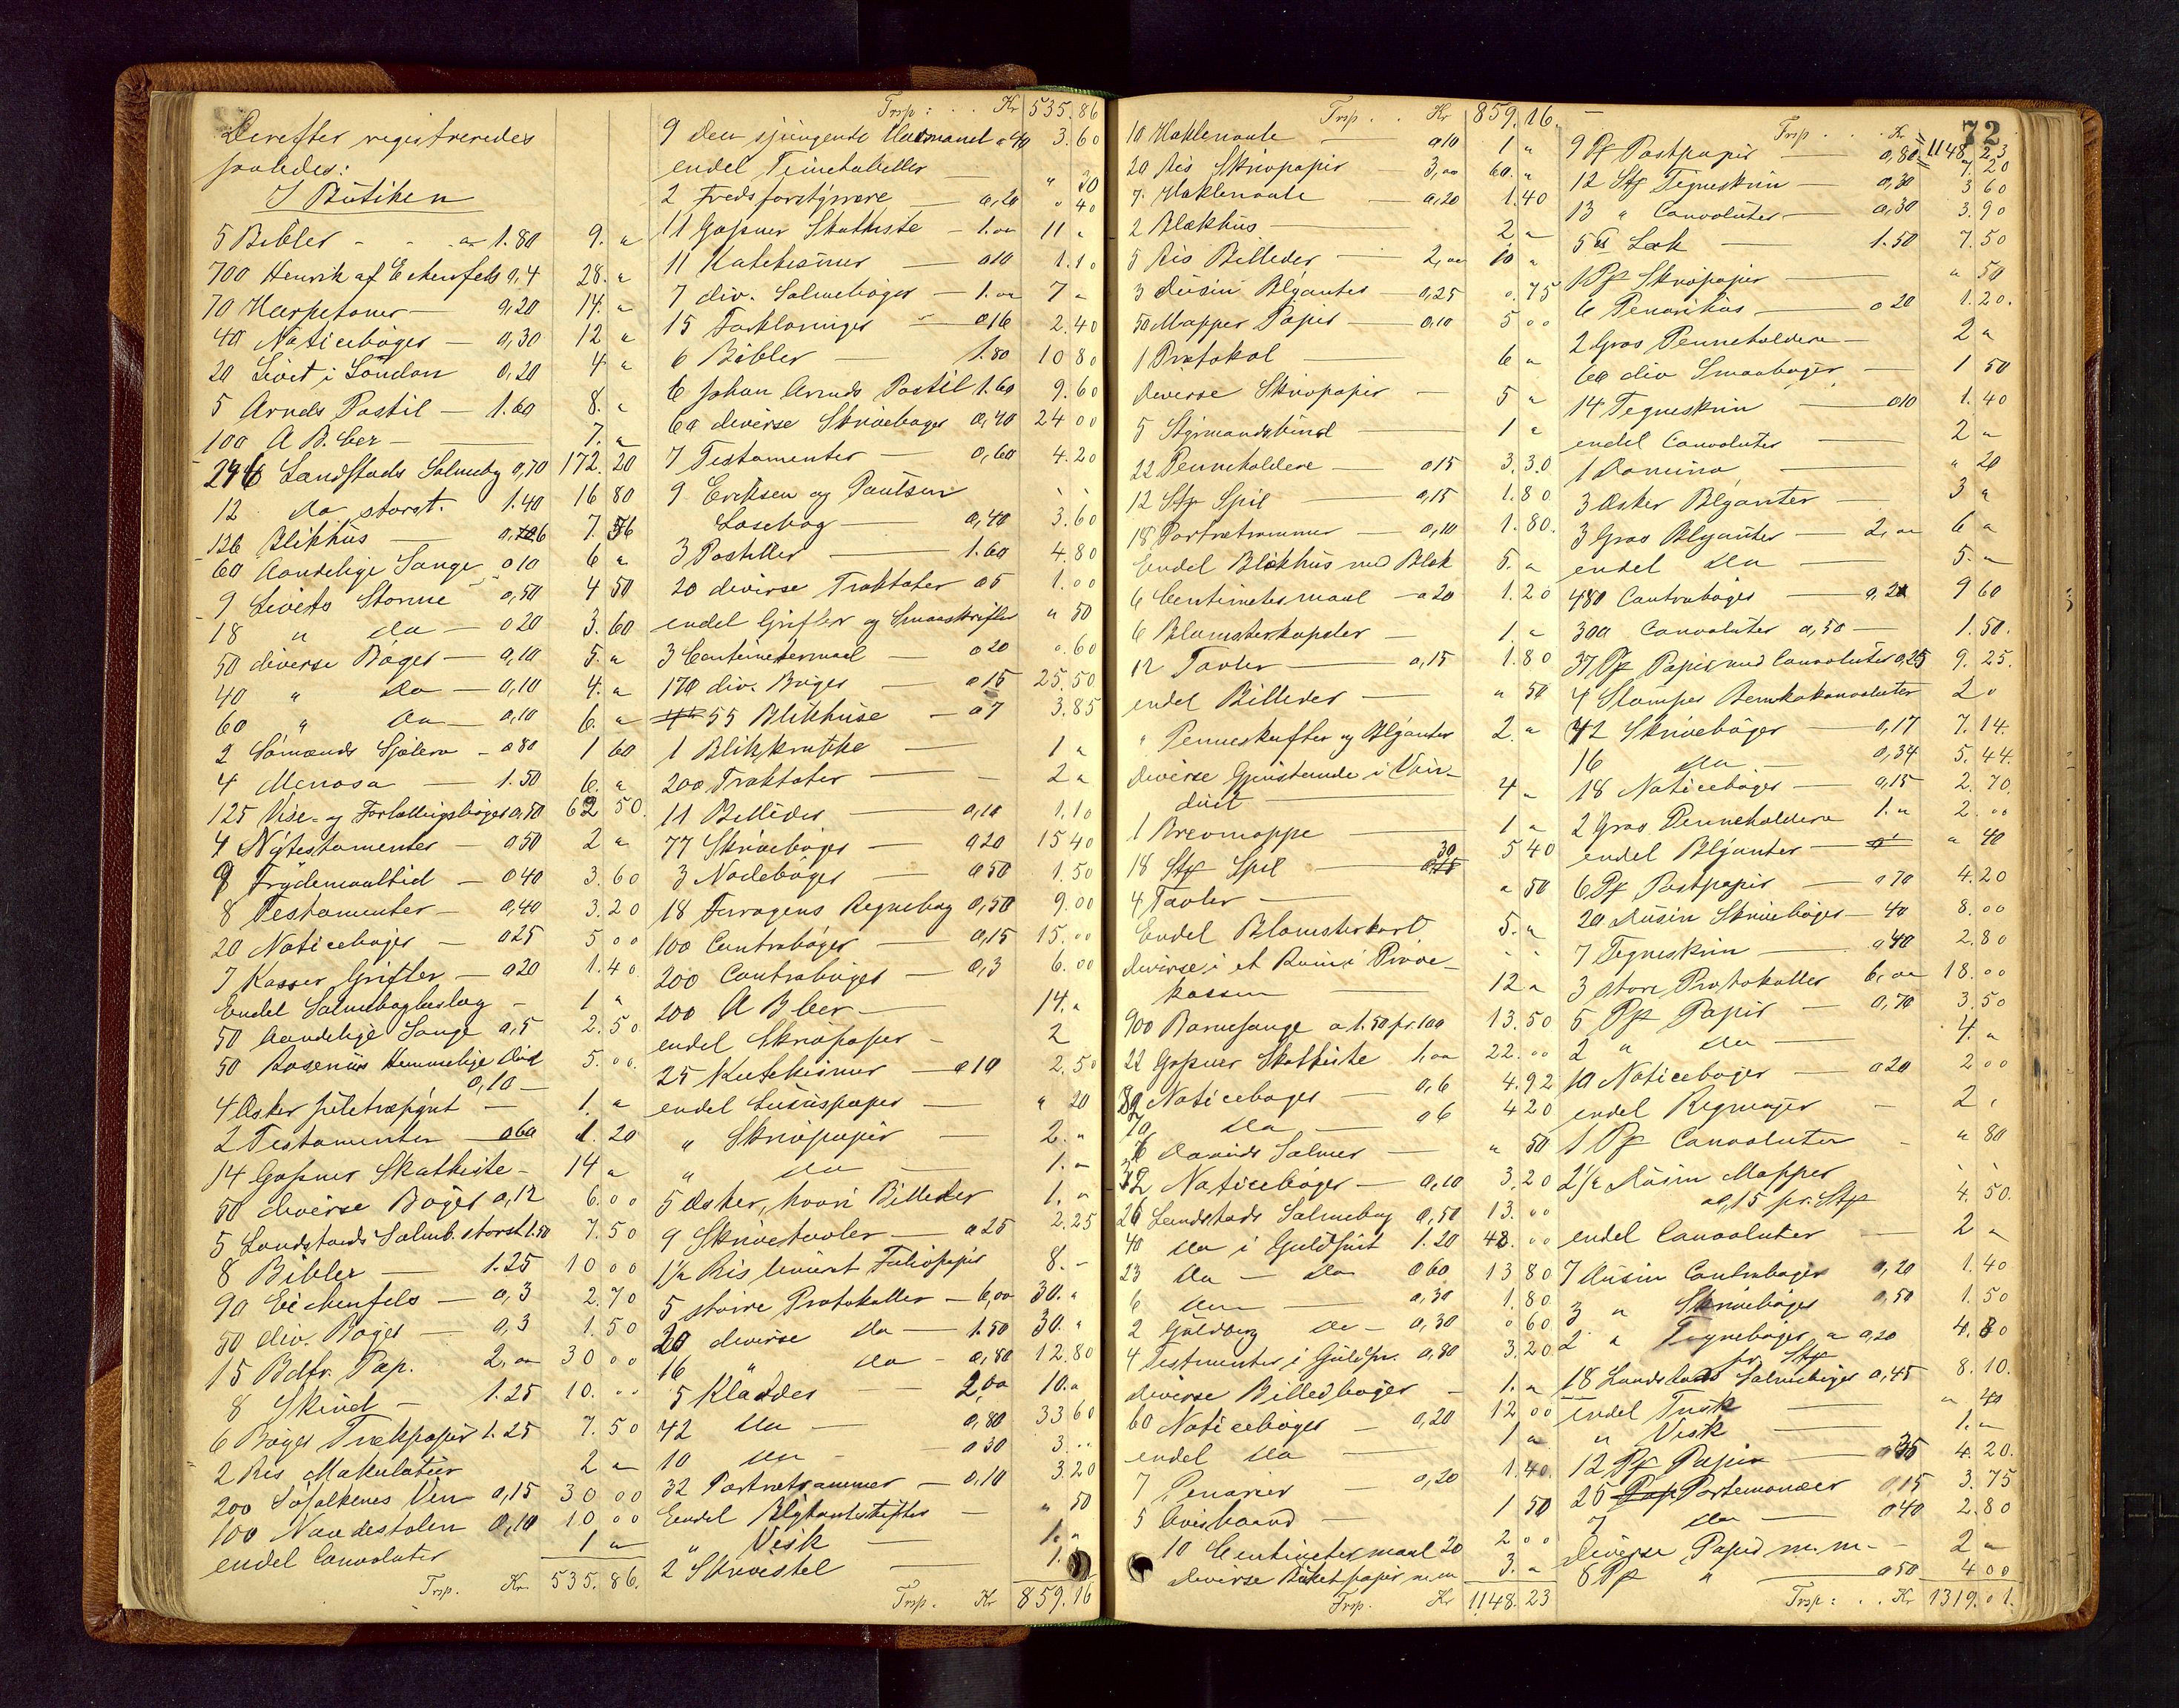 Derefter registreredes
saaledes:
I Butiken
5 Bibler - - a 1.80 9. "
700 Henrik af Eckenfels 0,4 28. "
70 Harpetoner — 0,20 14. "
40 Noticebøger — 0,30 12 "
20 Livet i London 0,20 4. "
5 Arnds Postil — 1.60 8. "
100 A.B.Cer — 7. "
246 Landstads Salmebg 0,70 172.20
12 do størst. 1.40 16 80
126 Blikhus — 0,06 7.56
60 Aandelige Sange 0 10 6 "
9 Livets Storme 0,50 4 50
18 " do — 0 20 3.60
50 diverse Bøger — 0,10 5. "
40 " do — 0,10 4. "
60 " do — 0,10 6. "
2 Sømands Sjælero - 0 80 1 60
4 Menosa — 1.50 6. "
125 Vise- og Fortællingsbøger 0,50 62 50.
4 Nýtestamenter — 0 50 2 "
9 Frydemaaltid — 0 40 3.60
8 Testamenter — 0,40 3.20
20 Noticebøger — 0 25 5 00
7 Kasser Grifler — 0 20 1.40
Endel Salmebogbeslag — 1 "
50 Aandelige Sange 0,5 2.50
50 Rosenius Hemmelige Raad 5.00.
0,10 —
4 Æsker — 1. "
2 Testamenter — 0 60 1.20
14 Gosner Skatkiste - 14 "
50 diverse Bøger 0,12 6.00
5 Landstads Salmb. størst 1.50 7.50
8 Bibler — 1.25 10 00
90 Eickenfels — 0,3 2.70
50 div. Bøger — 0,3 1.50
15 Pap. 2,00 30 00
8 Skind — 1.25 10.00
6 Bøger Trækpapir 1.25 7.50
2 Ris Makulatur 2 "
200 Søfolkenes Ven 0,15 30 00
100 Naadestolen 0,10 10 00
endel Convoluter 1 "
Trsp. Kr. 535.86.
Trsp: . . Kr 535.86
9 Den sjungende Husmand a 40 3.60
endel — " 30
2 Fredsforstýrrere — 0,20 " 40
11 Gosner Skatkiste — 1.00 11 "
11 Katekismer — 0 10 1.10
7 div. Salmebøger — 1.00 7 "
15 Forklaringer — 0 16 2.40
6 Bibler — 1.80 10 80
6 Johan Arnds Postil 1.60 9.60
60 diverse Skrivebøger 0,40 24 00
7 Testamenter — 0,60 4.20
9 Eriksen og Paulsen
Læsebog — 0,40 3.60
3 Postiller — 1.60 4.80
20 diverse Traktater 0 5 1.00
endel Grifler og Smaaskrifter " 50
3 Centimetermaal — 0 20 0.60
170 div. Bøger — 0 15 25.50
55 Blikhuse — 0 7 3.85
1 Blikkrukke — 1 "
200 Traktater — 2 "
11 Billeder — 0,10 1,10
77 Skrivebøger — 0 20 15 40
3 Nodebøger — 0 50 1.50
18 Regnebog 0,50 9.00
100 Contrabøger — 0,15 15.00
200 Contrabøger — 0,3 6.00
200 A B Cer — 14. "
endel Skrivpapir — 2
25 Katekismer — 0 10 2.50
endel Luxuspapir — " 20
" Skrivpapir — 2. "
" do — 1. -
5 Æsker, hvori Billeder 1. "
9 Skrivetavler — 0 25 2.25
1½ Ris liniert Foliopapir 8. -
5 større Protokoller — 6,00 30. "
20 diverse do — 1.50 30. "
16 " do — 0,80 12.80
5 Kladder — 2,00 10. "
42 do — 0,80 33 60
10 do — 0 30 3.00
32 Portrætrammer — 0,10 3.20
Endel Blýantstifter — " 50
" Visk — 1. "
2 Skrivestel — 1. "
Trsp. Kr 859.16
Trsp . . Kr 859.16.
10 Haklenaale — 0 10 1 "
20 Ris Skrivpapir — 3,00 60. "
7. Haklenaale — 0,20 1.40
2 Blækhus — 2 "
5 Ris Billeder — 2,00 10 "
3 Dusin Blýanter — 0,25 0.75
50 Mapper Papir — 0,10 5 00
1 Protokol — 6 "
Diverse Skrivpapir — 5 "
5 Stýrmandsbind — 1 "
22 Penneholdere — 0 15 3.30
12 Stk Spil — 0,15 1.80
18 Portrætrammer — 0,10 1.80.
Endel Blækhus med Blæk 5. "
6 Centimetermaal — 0 20 1.20
6 Blomsterkopster — 1. "
12 Tavler — 0,15 1.80
endel Billeder — " 50
" Penneskafter og Blýanter 2. "
Diverse Gjenstande i Vin-
duet — 4 "
1 Brevmappe — 1 "
18 Stk Spil — 30 5 40
4 Tavler — " 50
Endel Blomsterkort 5. "
Diverse i et Rum i Prøve-
kassen — 12 "
900 Barnesange a 1.50 pr. 100 13.50
22 Gosner Skatkiste 1,00 22.00
82 Noticebøger — 0,6 4.92
70 do — 0 6 4 20
Davids Salmer — " 50
32 Noticebøger — 0,10 3,20
26 Landstads Salmebog 0,50 13.00
40 do i Guldsnit 1.20 48.00
23 do — do 0 60 13 80
6 do — 0,30 1.80
2 Guldberg do — 0,30 0 60
4 Testmenter i Guldsn. 0,80 3.20
diverse Billedbøger — 1. "
60 Noticebøger — 0,20 12 00
endel do — 1 "
7 Penarier — 0,20 1.40.
5 — 1 50
10 Centimetermaal 20 2 00
diverse Buketpapir m.m 3. "
Trsp. Kr 1148.23
72
Trsp . . . Kr 1148.23
9 Pk Postpapir — 0,80 7.20
12 Stk Tegneskrin — 0,30 3 60
13 " Convoluter — 0,30 3.90
5 Lak — 1.50 7.50
1 Pk Skrivpapir — " 50
6 Penarihus — 0 20 1.20.
2 Gros Penneholdere — 2 "
60 div Smaabøger — 1 50
14 Tegneskrin — 0 10 1.40
endel Convoluter — 2 "
1 Domino — " 20
3 Æsker Blýanter — 3 "
3 Gros Blyanter — 2,00 6 "
endel do — 5. "
480 Contrabøger — 0,2 9 60
300 Convoluter 0,50 — 1.50.
37 Pk Papir med Convoluter 0,25 9.25.
4 2 0
42 Skrivebøger — 0,17 7.14.
16 do — 0,34 5.44.
18 Noticebøger — 0,15 2.70.
2 Gros Penneholdere 1. " 2.00
endel Blýanter — " 40
6 Pk Postpapir — 0 70 4.20
20 Dusin Skrivebøger — 40 8.00
7 Tegneskrin — 0 40 2.80
3 store Protokoller 6,00 18.00
5 Pk Papir — 0,70 3.50
2 " do — 4. "
10 Noticebøger — 0 20 2 00
endel — 2 "
1 Pk Convoluter — " 80
2½ Dusin Mapper
a 0,15 pr. Stk 4.50.
endel Convoluter — 2 "
7 Dusin Contrabøger 0,20 1.40
3 " Skrivebøger 0,50 1.50
2 " Tegnebøger a 0,20 4.80
pr. Stk
18 Landstads Salmebøger 0,45 8.10.
endel Tusk — " 40
" Visk — 1. "
12 Pk Papir — 0 35 4.20.
25 Portemonæer 0,15 3.75
7 do — 0 40 2.80
Diverse Papir m.m. - 2 "
8 Pk " — 0 50 4 00
Trsp: . . Kr 1319.01.